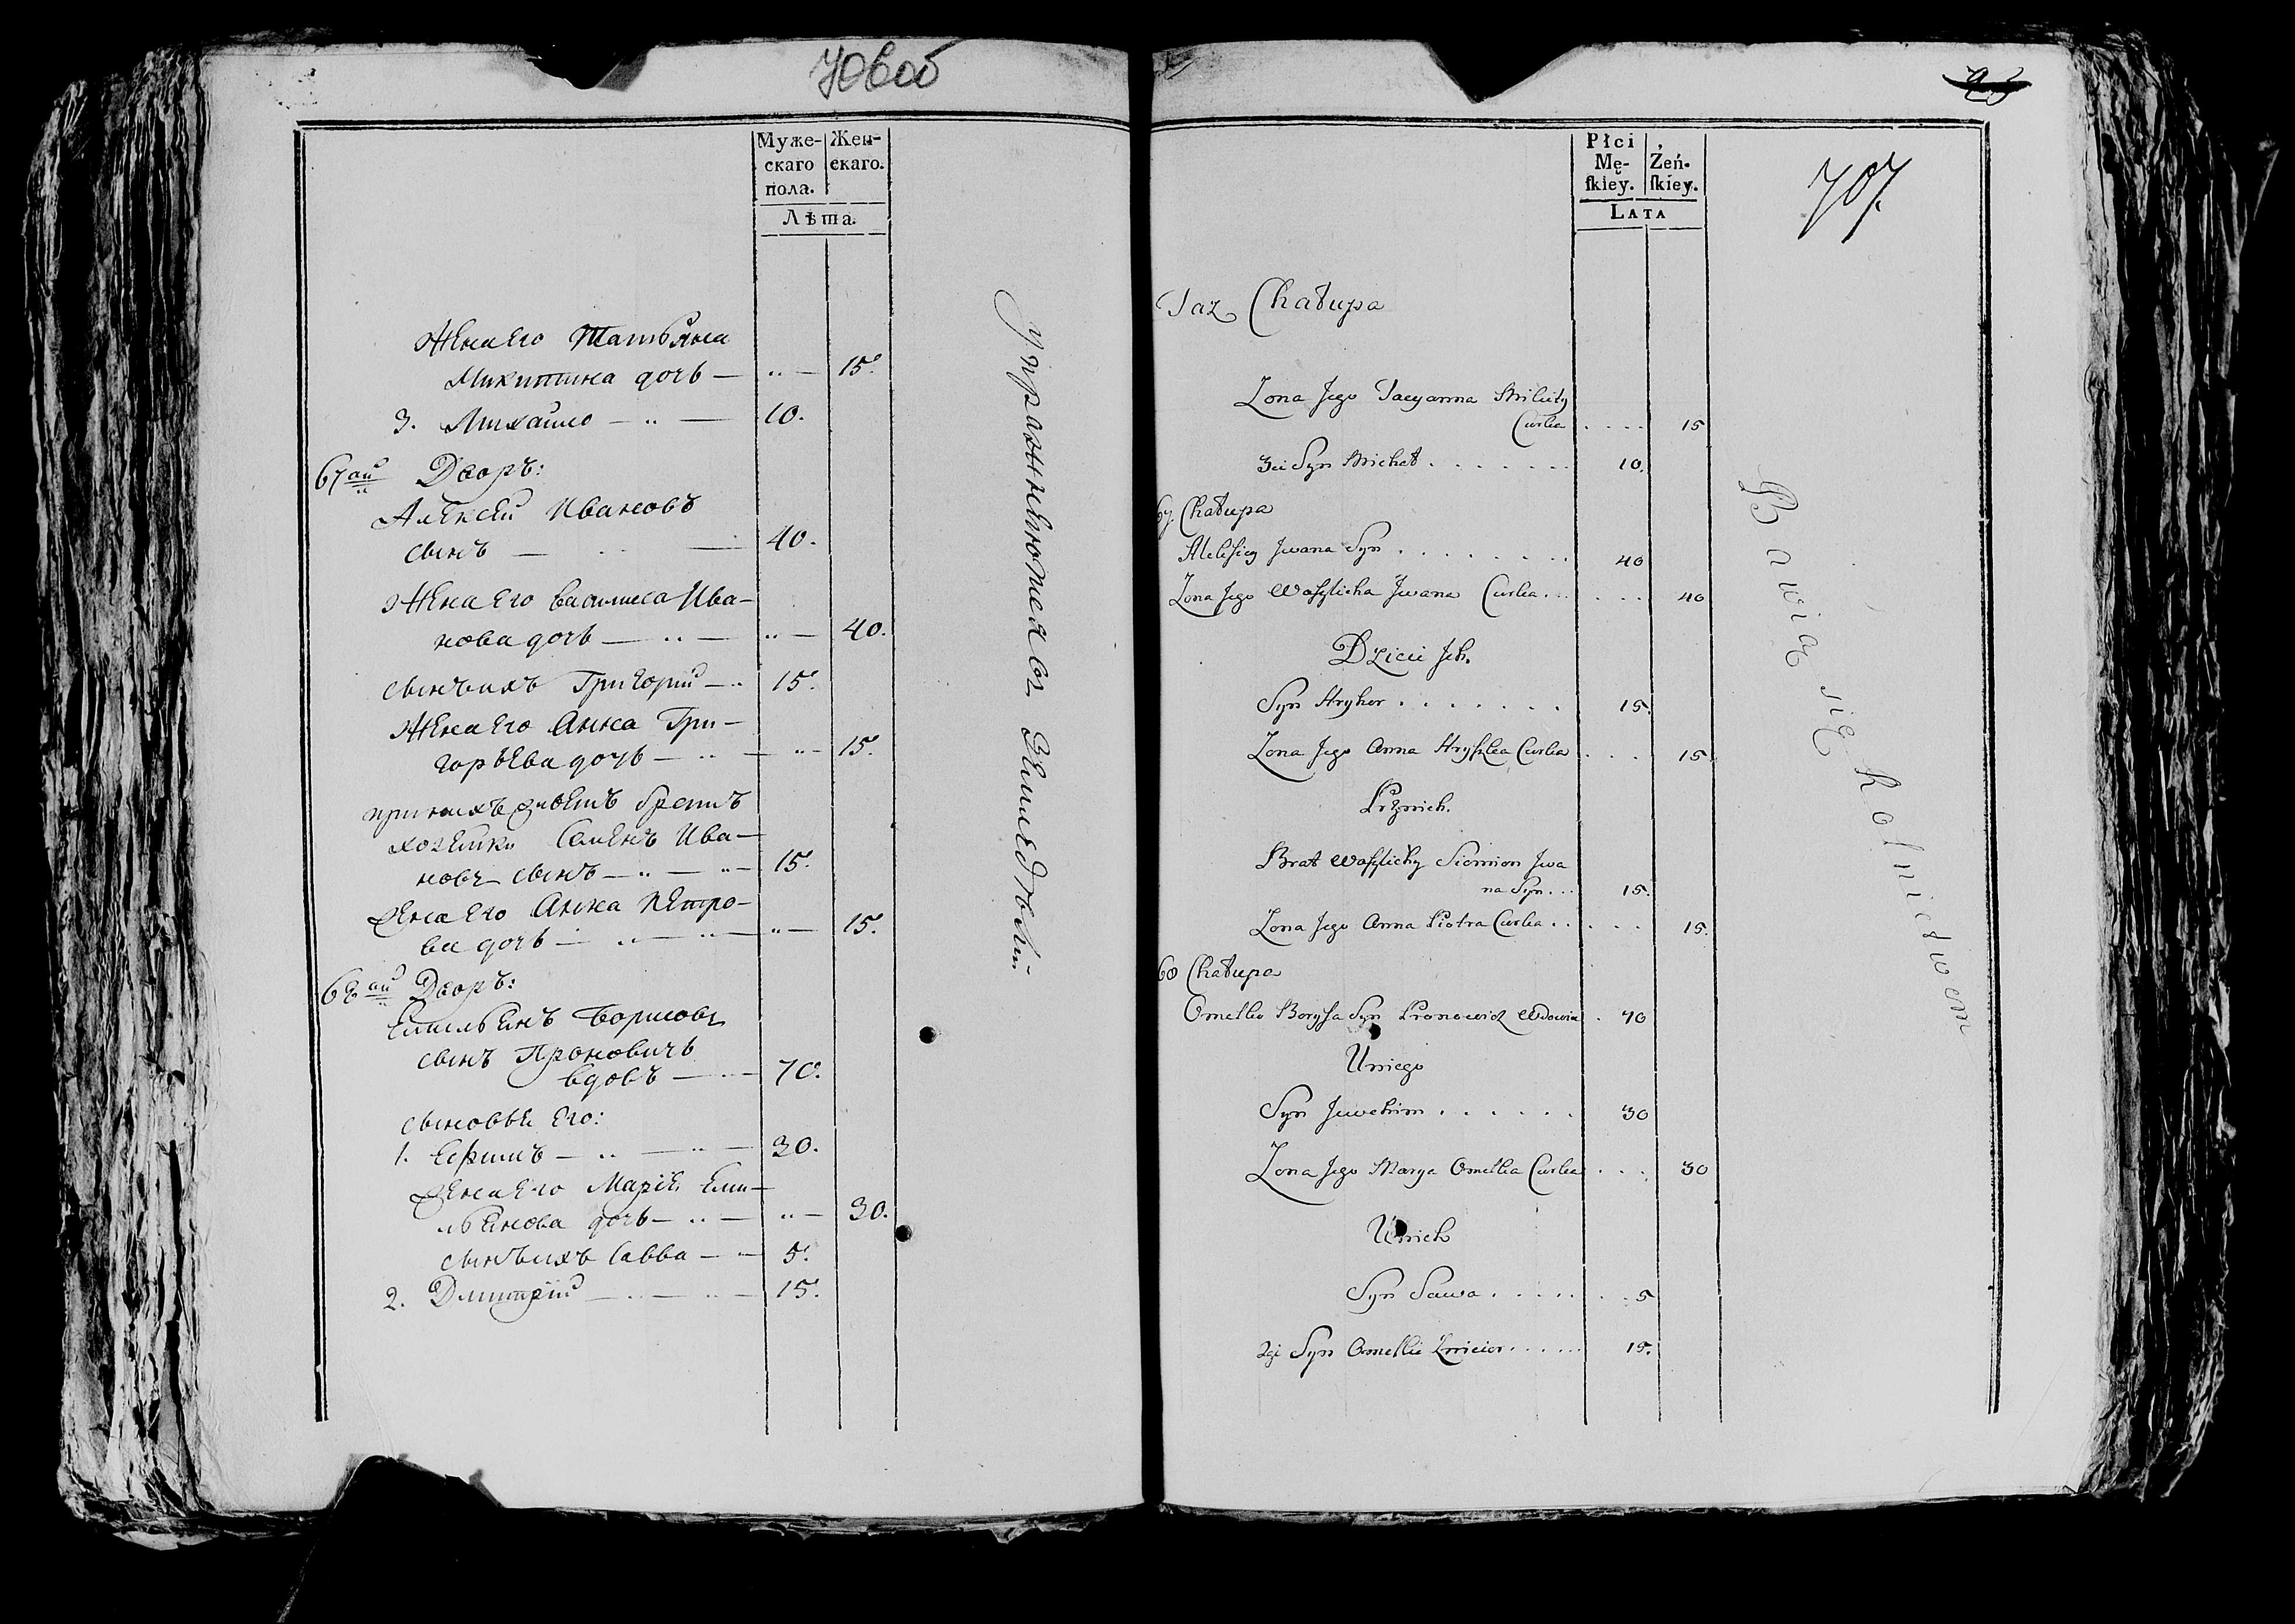 706 об
Муже-
скаго
пола.
Жен-
скаго.
Лѣта.
Жена его Татьяна
Микитина дочь — 15.
3. Михайло — 10.
67ой Дворъ:
Алексей Ивановъ
сынъ — 40.
Жена его василиса Ива-
нова дочь — 40.
сынъ ихъ Григорий — 15.
Жена его Анна Гри-
горьева дочь — 15.
при нихъ живетъ братъ
хозейки Семенъ Ива-
новъ сынъ — 15.
жена его Анна Петро-
ва дочь — 15.
68ой Дворъ:
Емельянъ Борисовъ
сынъ Проновичъ
вдовъ — 70.
сыновья его:
1. Ефимъ — 30.
жена его Марiя Еми-
льянова дочь — 30.
сынъ ихъ Савва — 5.
2. Дмитрiй — 15.
упражняются въ Земледѣлии.
Płci
Mę-
skiey.
Żeń-
skiey.
LATA
707.
Taz Chałupa
Zona Jego Tacyanna Mikity
Curka . . . . 15
3ci Syn Michał . . . . . . . 10.
67. Chałupa
Alexiey Jwana Syn . . . . . . . 40
Zona Jego Wasylicha Jwana Curka . . . . . . 40
Dzieci Jch.
Syn Hryhor . . . . . . . 15.
Zona Jego Anna Hryszka Curka . . . 15
Przynich.
Brat Wasylichy Siemion Jwa
na Syn . . . 15.
Zona Jego Anna Piotra Curka . . . . . 15.
68 Chałupa
Omelko Borysa Syn Pronowicz Wdowiec . 70
Uniego
Syn Juchim . . . . . . 30
Zona Jego Marya Omelka Curka . . . 30
Unich
Syn Sawa . . . . . . . 5
2gi Syn Omelki Zmicier . . . . . . 15.
Bawią się Rolnictwem